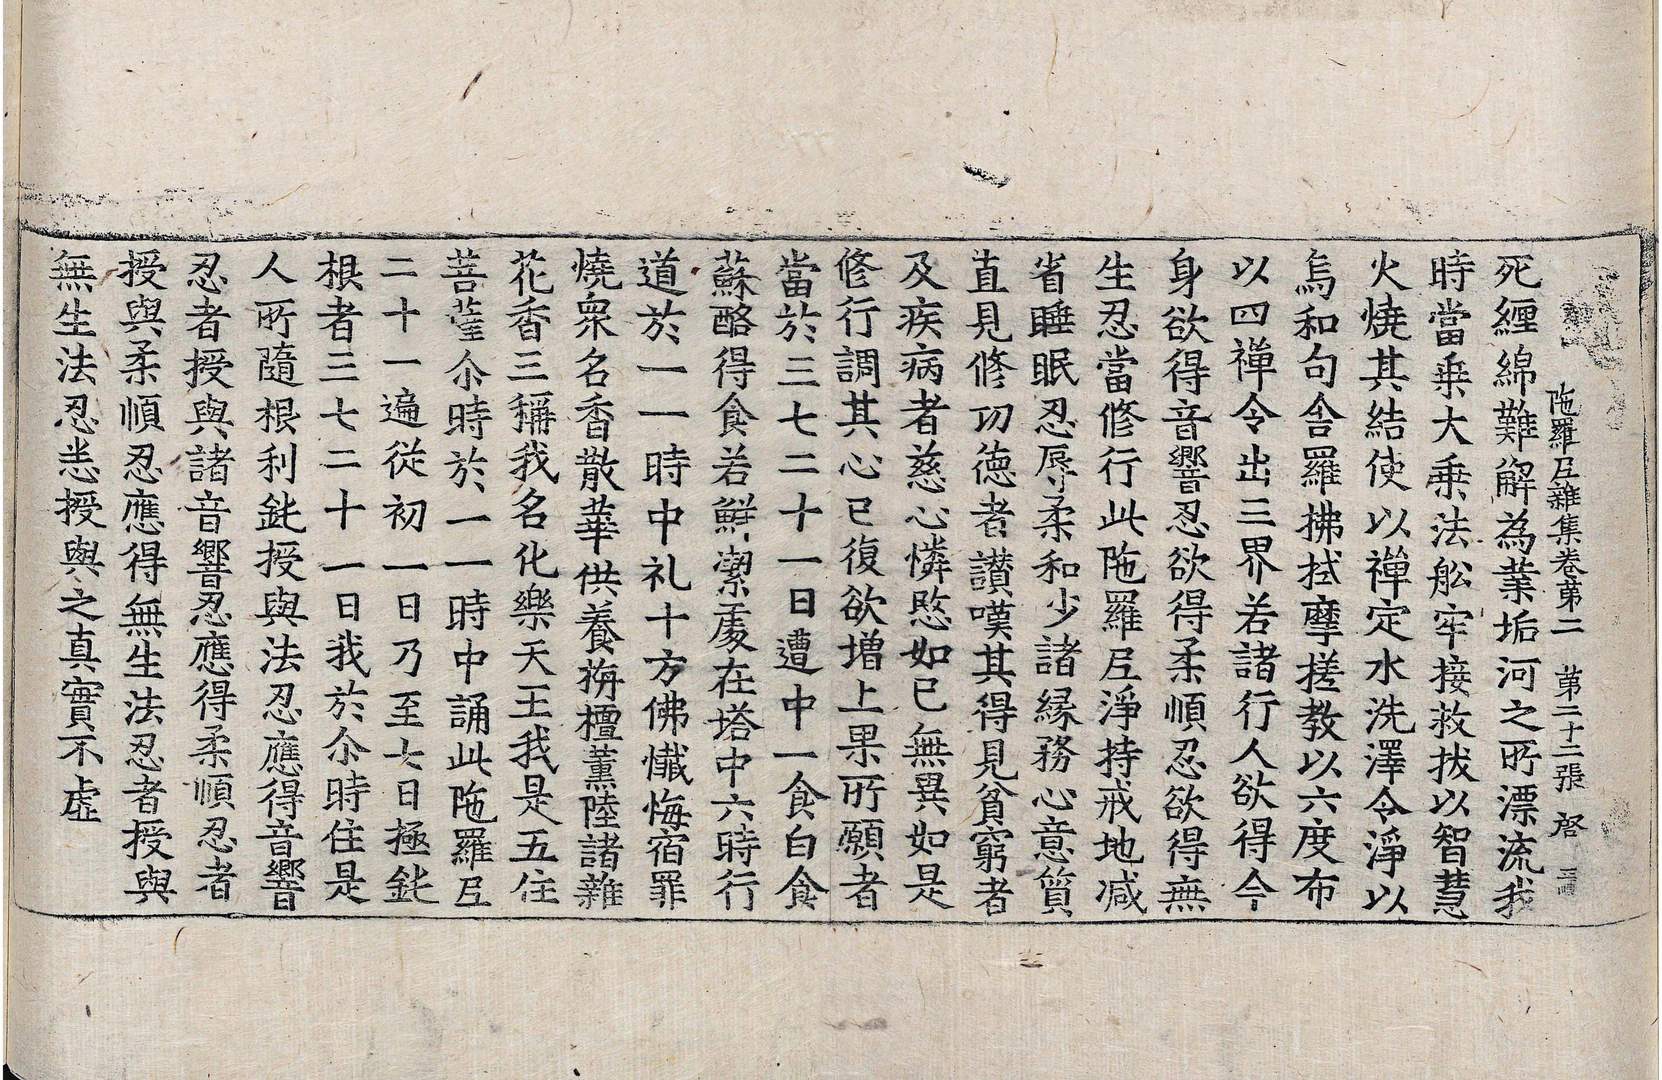 陁羅尼雜集卷苐二 苐二十二張 啓
死纒綿難解為業垢河之所漂流我
時當乗大乗法舩牢接救拔以智慧
火燒其結使以禅定水洗澤令淨以
烏和句舍羅拂拭摩搓教以六度布
以四禅令出三界若諸行人欲得今
身欲得音響忍欲得柔順忍欲得無
生忍當修行此陁羅尼淨持戒地减
省睡眠忍辱柔和少諸縁務心意質
直見修功徳者讃嘆其得見貧窮者
及疾病者慈心憐愍如已無異如是
修行調其心已復欲增上果所願者
當於三七二十一日遭中一食白食
蘇酪得食若鮮潔處在塔中六時行
道於一一時中礼十方佛懺悔宿罪
燒衆名香散華供養栴檀薫陸諸雜
花香三稱我名化樂天王我是五住
菩薩尒時於一一時中誦此陁羅尼
二十一遍從初一日乃至七日極鈍
根者三七二十一日我於尒時住是
人所隨根利鈍授與法忍應得音響
忍者授與諸音響忍應得柔順忍者
授與柔順忍應得無生法忍者授與
無生法忍悉授與之真實不虚